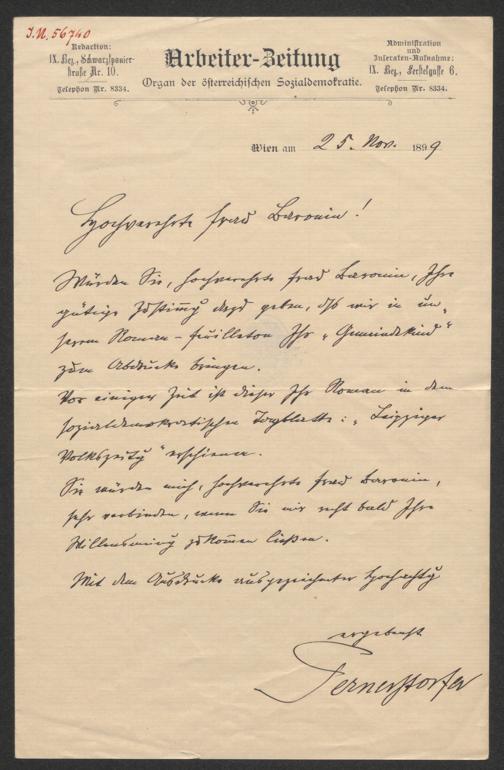 I.N. 56740
Redaction:
IX. Bez., Schwarzspanier-
straße Nr. 10.
Telephon Nr. 8334.
Arbeiter-Zeitung
Organ der österreichischen Sozialdemokratie.
Administration
und
Inseraten-Aufnahme:
IX. Bez., Ferstelgasse 6.
Telephon Nr. 8334.
Wien am 25. Nov. 1899
Hochverehrte Frau Baronin!
Würden Sie, hochverehrte Frau Baronin, Ihre
gütige Zustimmg dazu geben, daß wir in un-
serem Roman-Feuilleton Ihr „Gemeindekind"
zum Abdrucke bringen.
Vor einiger Zeit ist dieser Ihr Roman in dem
sozialdemokratischen Tagblatte: „Leipziger
Volkszeitg" erschienen.
Sie würden mich, hochverehrte Frau Baronin,
sehr verbinden, wenn Sie mir recht bald Ihre
Willensmeing zukommen ließen.
Mit dem Ausdrucke ausgezeichneter Hochachtg
ergebenst
Pernerstorfer